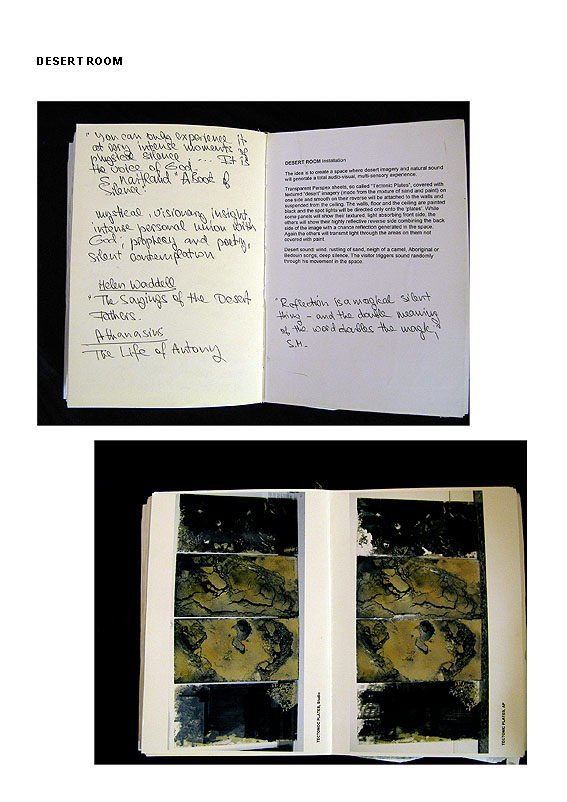 DESERT ROOM
"You can only experience it
at very intense moments of
physical silence .... It is
the voice of God
S. Maitland "A Book of
Silence"
mystical, visionary insight,
intense personal union with
God, prophecy and poetry,
silent contemplation
Helen Waddell
"The Sayings of the Desert
Fathers.
Athanasius
The Life of Antony
DESERT ROOM Installation
The idea is to create a space where desert imagery and natural sound
will generate a total audio-visual, multi-sensory experience.
Transparent Perspex sheets, so called "Tectonic Plates", covered with
textured "desert" imagery (made from the mixture of sand and paint) on
one side and smooth on their reverse will be attached to the walls and
suspended from the ceiling. The walls, floor and the ceiling are painted
black and the spot lights will be directed only onto the 'plates'. While
some panels will show their textured, light absorbing front side, the
others will show their highly reflective reverse side combining the back
side of the image with a chance reflection generated in the space.
Again the others will transmit light through the areas on them not
covered with paint.
Desert sound: wind, rustling of sand, neigh of a camel, Aboriginal or
Bedouin songs, deep silence. The visitor triggers sound randomly
through his movement in the space.
"Reflection is a magical silent
thing – and the double meaning
of the word doubles the magic"
S.M.
TECTONIC PLATES, Studio
TECTONIC PLATES, AP